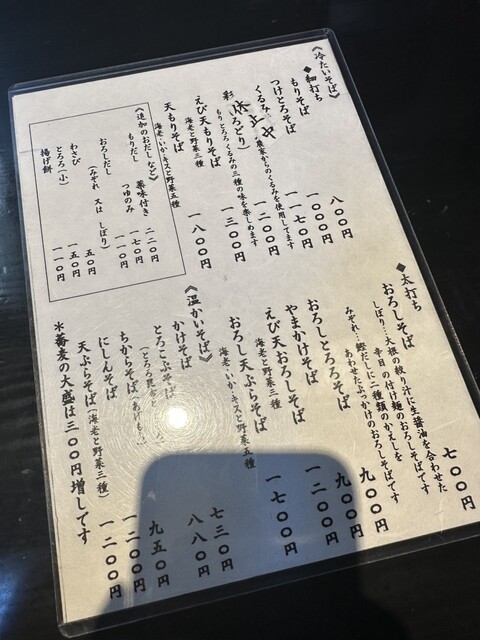 《冷たいそば》
◆細打ち
もりそば 八〇〇円
つけとろそば 一〇〇〇円
くるみそば 一一〇〇円
農家からのくるみを使用してます
休止中
彩(いろどり) 一二〇〇円
もり とろろ くるみの三種の味を楽しめます
えび天もりそば 一三〇〇円
海老と野菜三種
天もりそば 一八〇〇円
海老・いか・キスと野菜五種
《追加のおだしなど》
もりだし 薬味付き 二二〇円
つゆのみ 一七〇円
おろしだし 一一〇円
(みぞれ 又は しぼり)
わさび 五〇円
とろろ(小) 一五〇円
揚げ餅 一一〇円
◆太打ち
おろしそば 七〇〇円
しぼり…大根の絞り汁に生醤油を合わせた
辛目の付け麺のおろしそばです
みぞれ…鰹だしに二種類のかえしを
あわせたぶっかけのおろしそばです
おろしとろろそば 九〇〇円
やまかけそば 九〇〇円
えび天おろしそば 一二〇〇円
海老と野菜三種
おろし天ぷらそば 一七〇〇円
海老・いか・キスと野菜五種
《温かいそば》
かけそば 七三〇円
とろこぶそば 八八〇円
(とろろ昆布と
ちからそば(あげもち) 九五〇円
にしんそば 一二〇〇円
天ぷらそば(海老と野菜三種) 一二〇〇円
＊蕎麦の大盛は三〇〇円増しです